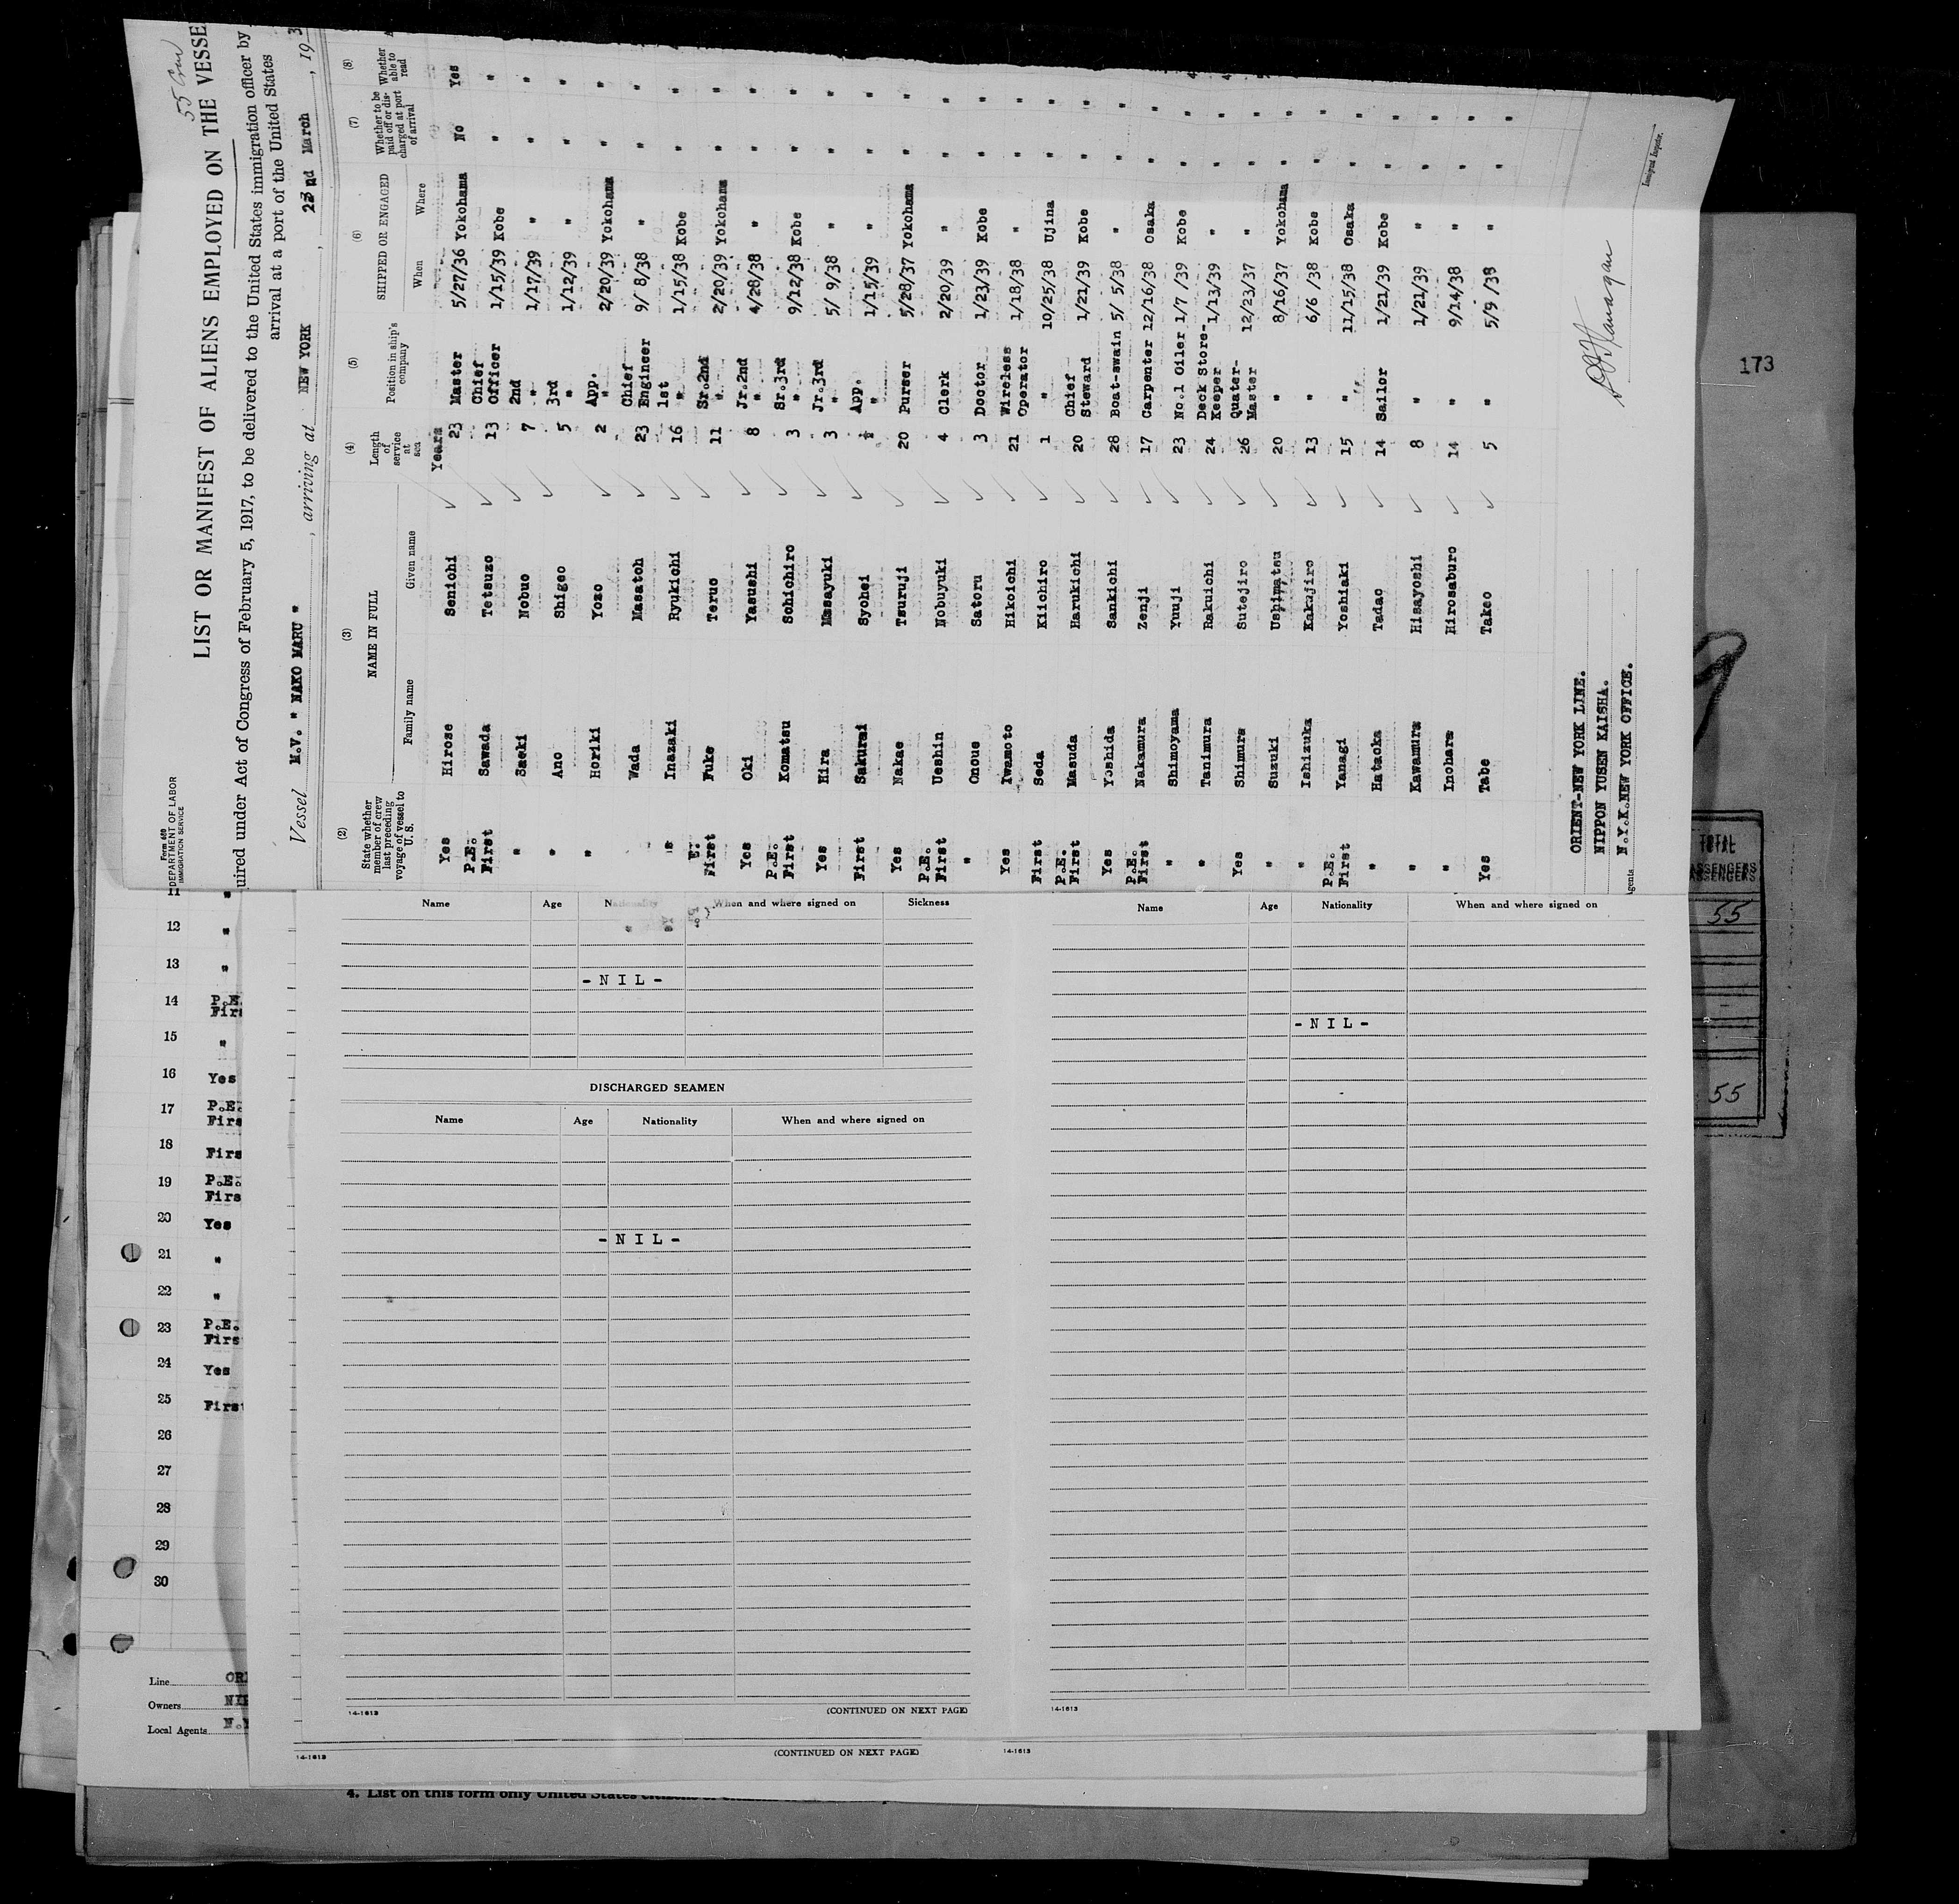 55 Crew
LIST OR MANIFEST OF ALIENS EMPLOYED ON THE VESSE
Form 680
DEPARTMENT OF LABOR
IMMIGRATION SERVICE
uired under Act of Congress of February 5, 1917, to be delivered to the United States immigration officer by
arrival at a port of the United States
Vessel M.V. " NAKO MARU " , arriving at NEW YORK , 23nd March , 193
(2) (3) (4) (5) (6) (7) (8)
State whether member of crew last preceding voyage of vessel to U. S.
NAME IN FULL
Family name Given name
Length of service at sea
Position in ship's company
SHIPPED OR ENGAGED
When Where
Whether to be paid off or discharged at port of arrival
Whether able to read
Years
Yes Hirose Senichi 23 Master 5/27/36 Yokohama No Yes
P.E. First Sawada Tetsuzo 13 Chief Officer 1/15/39 Kobe " "
" Saeki Nobuo 7 2nd " 1/17/39 " " "
" Ano Shigeo 5 3rd " 1/12/39 " " "
" Horiki Yozo 2 App. " 2/20/39 Yokohama " "
Wada Masatoh 23 Chief Engineer 9/ 8/38 " " "
" Inazaki Ryukichi 16 1st " 1/15/38 Kobe " "
P.E. First Fuke Teruo 11 Sr.2nd " 2/20/39 Yokohama " "
Yes Oki Yasushi 8 Jr.2nd " 4/28/38 " " "
P.E. First Komatsu Sohichiro 3 Sr.3rd " 9/12/38 Kobe " "
Yes Hira Masayuki 3 Jr.3rd " 5/ 9/38 " " "
First Sakurai Syohei ½ App. " 1/15/39 " " "
Yes Nakae Tsuruji 20 Purser 5/28/37 Yokohama " "
P.E. First Ueshin Nobuyuki 4 Clerk 2/20/39 " " "
" Onoue Satoru 3 Doctor 1/23/39 Kobe " "
Yes Iwamoto Hikoichi 21 Wireless Operator 1/18/38 " " "
First Seda Kiichiro 1 " 10/25/38 Ujina " "
P.E. First Masuda Harukichi 20 Chief Steward 1/21/39 Kobe " "
Yes Yoshida Sankichi 28 Boat-swain 5/ 5/38 " " "
P.E. First Nakamura Zenji 17 Carpenter 12/16/38 Osaka " "
" Shimoyama Yuuji 23 No.1 Oiler 1/7 /39 Kobe " "
" Tanimura Rakuichi 24 Deck Store-Keeper 1/13/39 " " "
Yes Shimura Sutejiro 26 Quater-Master 12/23/37 " " "
" Suzuki Ushimatsu 20 " 8/16/37 Yokohama " "
" Ishizuka Kakujiro 13 " 6/6 /38 Kobe " "
P.E. First Yanagi Yoshiaki 15 " 11/15/38 Osaka " "
" Hataoka Tadao 14 Sailor 1/21/39 Kobe " "
" Kawamura Hisayoshi 8 " 1/21/39 " " "
" Inohara Hirosaburo 14 " 9/14/38 " " "
Yes Tabe Takeo 5 " 5/9 /38 " " "
ORIENT-NEW YORK LINE.
NIPPON YUSEN KAISHA.
Agents N.Y.K.NEW YORK OFFICE.
Immigrant Inspector.
173
TOTAL
PASSENGERS
55
-
55
11 "
12 "
13 "
14 P.E. Firs
15 "
16 Yes
17 P.E. Firs
18 Firs
19 P.E. Firs
20 Yes
21 "
22 "
23 P.E. Firs
24 Yes
25 First
26
27
28
29
30
Line ORI
Owners NIP
Local Agents N.Y
Name Age Nationality When and where signed on Sickness
-NIL-
DISCHARGED SEAMEN
Name Age Nationality When and where signed on
-NIL-
14-1613 (CONTINUED ON NEXT PAGE)
Name Age Nationality When and where signed on
-NIL-
14-1613
14-1613 (CONTINUED ON NEXT PAGE) 14-1613
4. List on this form only United States citizens